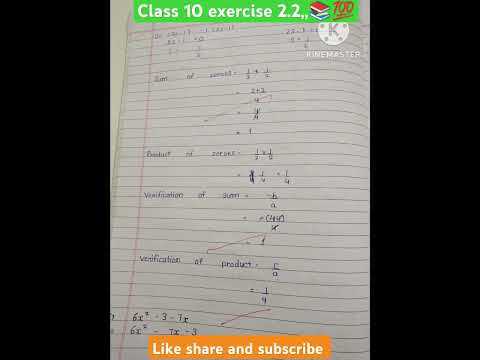 Class 10 exercise 2.2,,📚💯
KINEMASTER
Sum of zeroes = 1/2 + 1/2
= 2+2/4
= 4/4
= 1
Product of zeroes = 1/2 × 1/2
= 1/4 = 1/4
Verification of sum = -b/a
= -(-4)/4
= 1
Verification of product = c/a
= 1/4
6x² - 3 - 7x
6x² - 7x - 3
Like share and subscribe